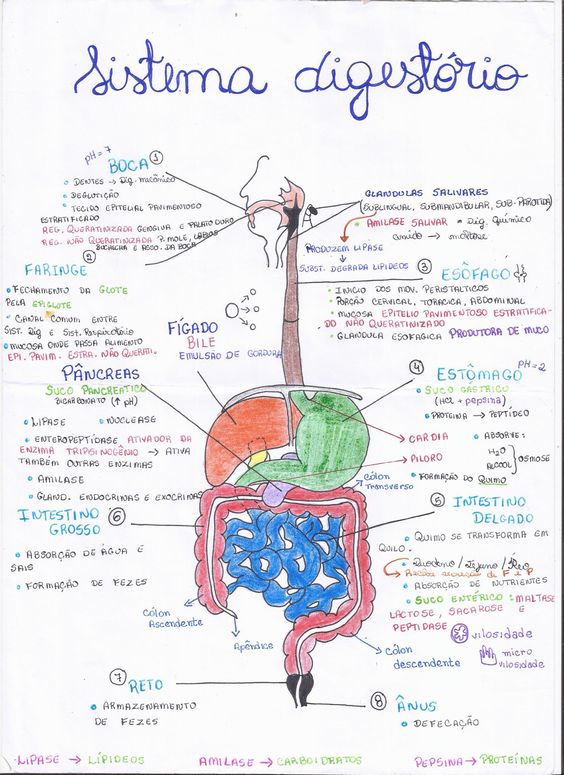 Sistema digestório
pH=7
BOCA 1
• DENTES → Dig. mecânico
• DEGLUTIÇÃO
• TECIDO EPITELIAL PAVIMENTOSO
ESTRATIFICADO
REG. QUERATINIZADA GENGIVA E PALATO DURO
REG. NÃO QUERATINIZADA P. MOLE, LÁBIOS
BUCHECHA E ASSO. DA BOCA
GLANDULAS SALIVARES
(SUBLINGUAL, SUBMANDIBULAR, SUB-PAROTIDA)
• AMILASE SALIVAR = Dig. Químico
amido → maltose
PRODUZEM LIPASE
↓
SUBST. DEGRADA LIPIDEOS
2
FARINGE
• FECHAMENTO DA GLOTE
PELA EPIGLOTE
• CANAL COMUM ENTRE
SIST. Dig E SIST. Respiratório
• MUCOSA ONDE PASSA ALIMENTO
EPI. PAVIM. ESTRA. NÃO QUERATI.
3 ESÔFAGO
• INICIO DOS MOV. PERISTALTICOS
• PORÇÃO CERVICAL, TORACICA, ABDOMINAL
• MUCOSA EPITELIO PAVIMENTOSO ESTRATIFICA-
DO NÃO QUERATINIZADO
• GLANDULA ESOFAGICA PRODUTORA DE MUCO
FÍGADO
BILE
EMULSÃO DE GORDURA
PÂNCREAS
SUCO PANCREATICO
BICARBONATO (↑ pH)
• LIPASE • NUCLEASE
• ENTEROPEPTÍDASE ATIVADOR DA
ENZIMA TRIPSINOGÊNIO → ATIVA
TAMBÉM OUTRAS ENZIMAS
• AMILASE
• GLAND. ENDOCRINAS E EXOCRINAS
pH=2
4 ESTÔMAGO
• SUCO GÁSTRICO
(HCl + pepsina)
• PROTEINA → PEPTÍDEO
CARDIA
• ABSORVE:
H₂O
ALCOOL } OSMOSE
PILORO
• FORMAÇÃO DO QUIMO
Cólon
Transverso
INTESTINO 6
GROSSO
• ABSORÇÃO DE ÁGUA E
SAIS
• FORMAÇÃO DE FEZES
5 INTESTINO
DELGADO
• QUIMO SE TRANSFORMA EM
QUILO.
• Duodeno / Jejuno / Íleo
Recebe secreção de F e P
• ABSORÇÃO DE NUTRIENTES
• SUCO ENTÉRICO: MALTASE
LACTOSE, SACAROSE E
PEPTIDASE
vilosidade
micro
vilosidade
Cólon
Ascendente
Apêndice
Cólon
descendente
7 RETO
• ARMAZENAMENTO
DE FEZES
8 ÂNUS
• DEFECAÇÃO
LIPASE → LÍPIDEOS AMILASE → CARBOIDRATOS PEPSINA → PROTEÍNAS